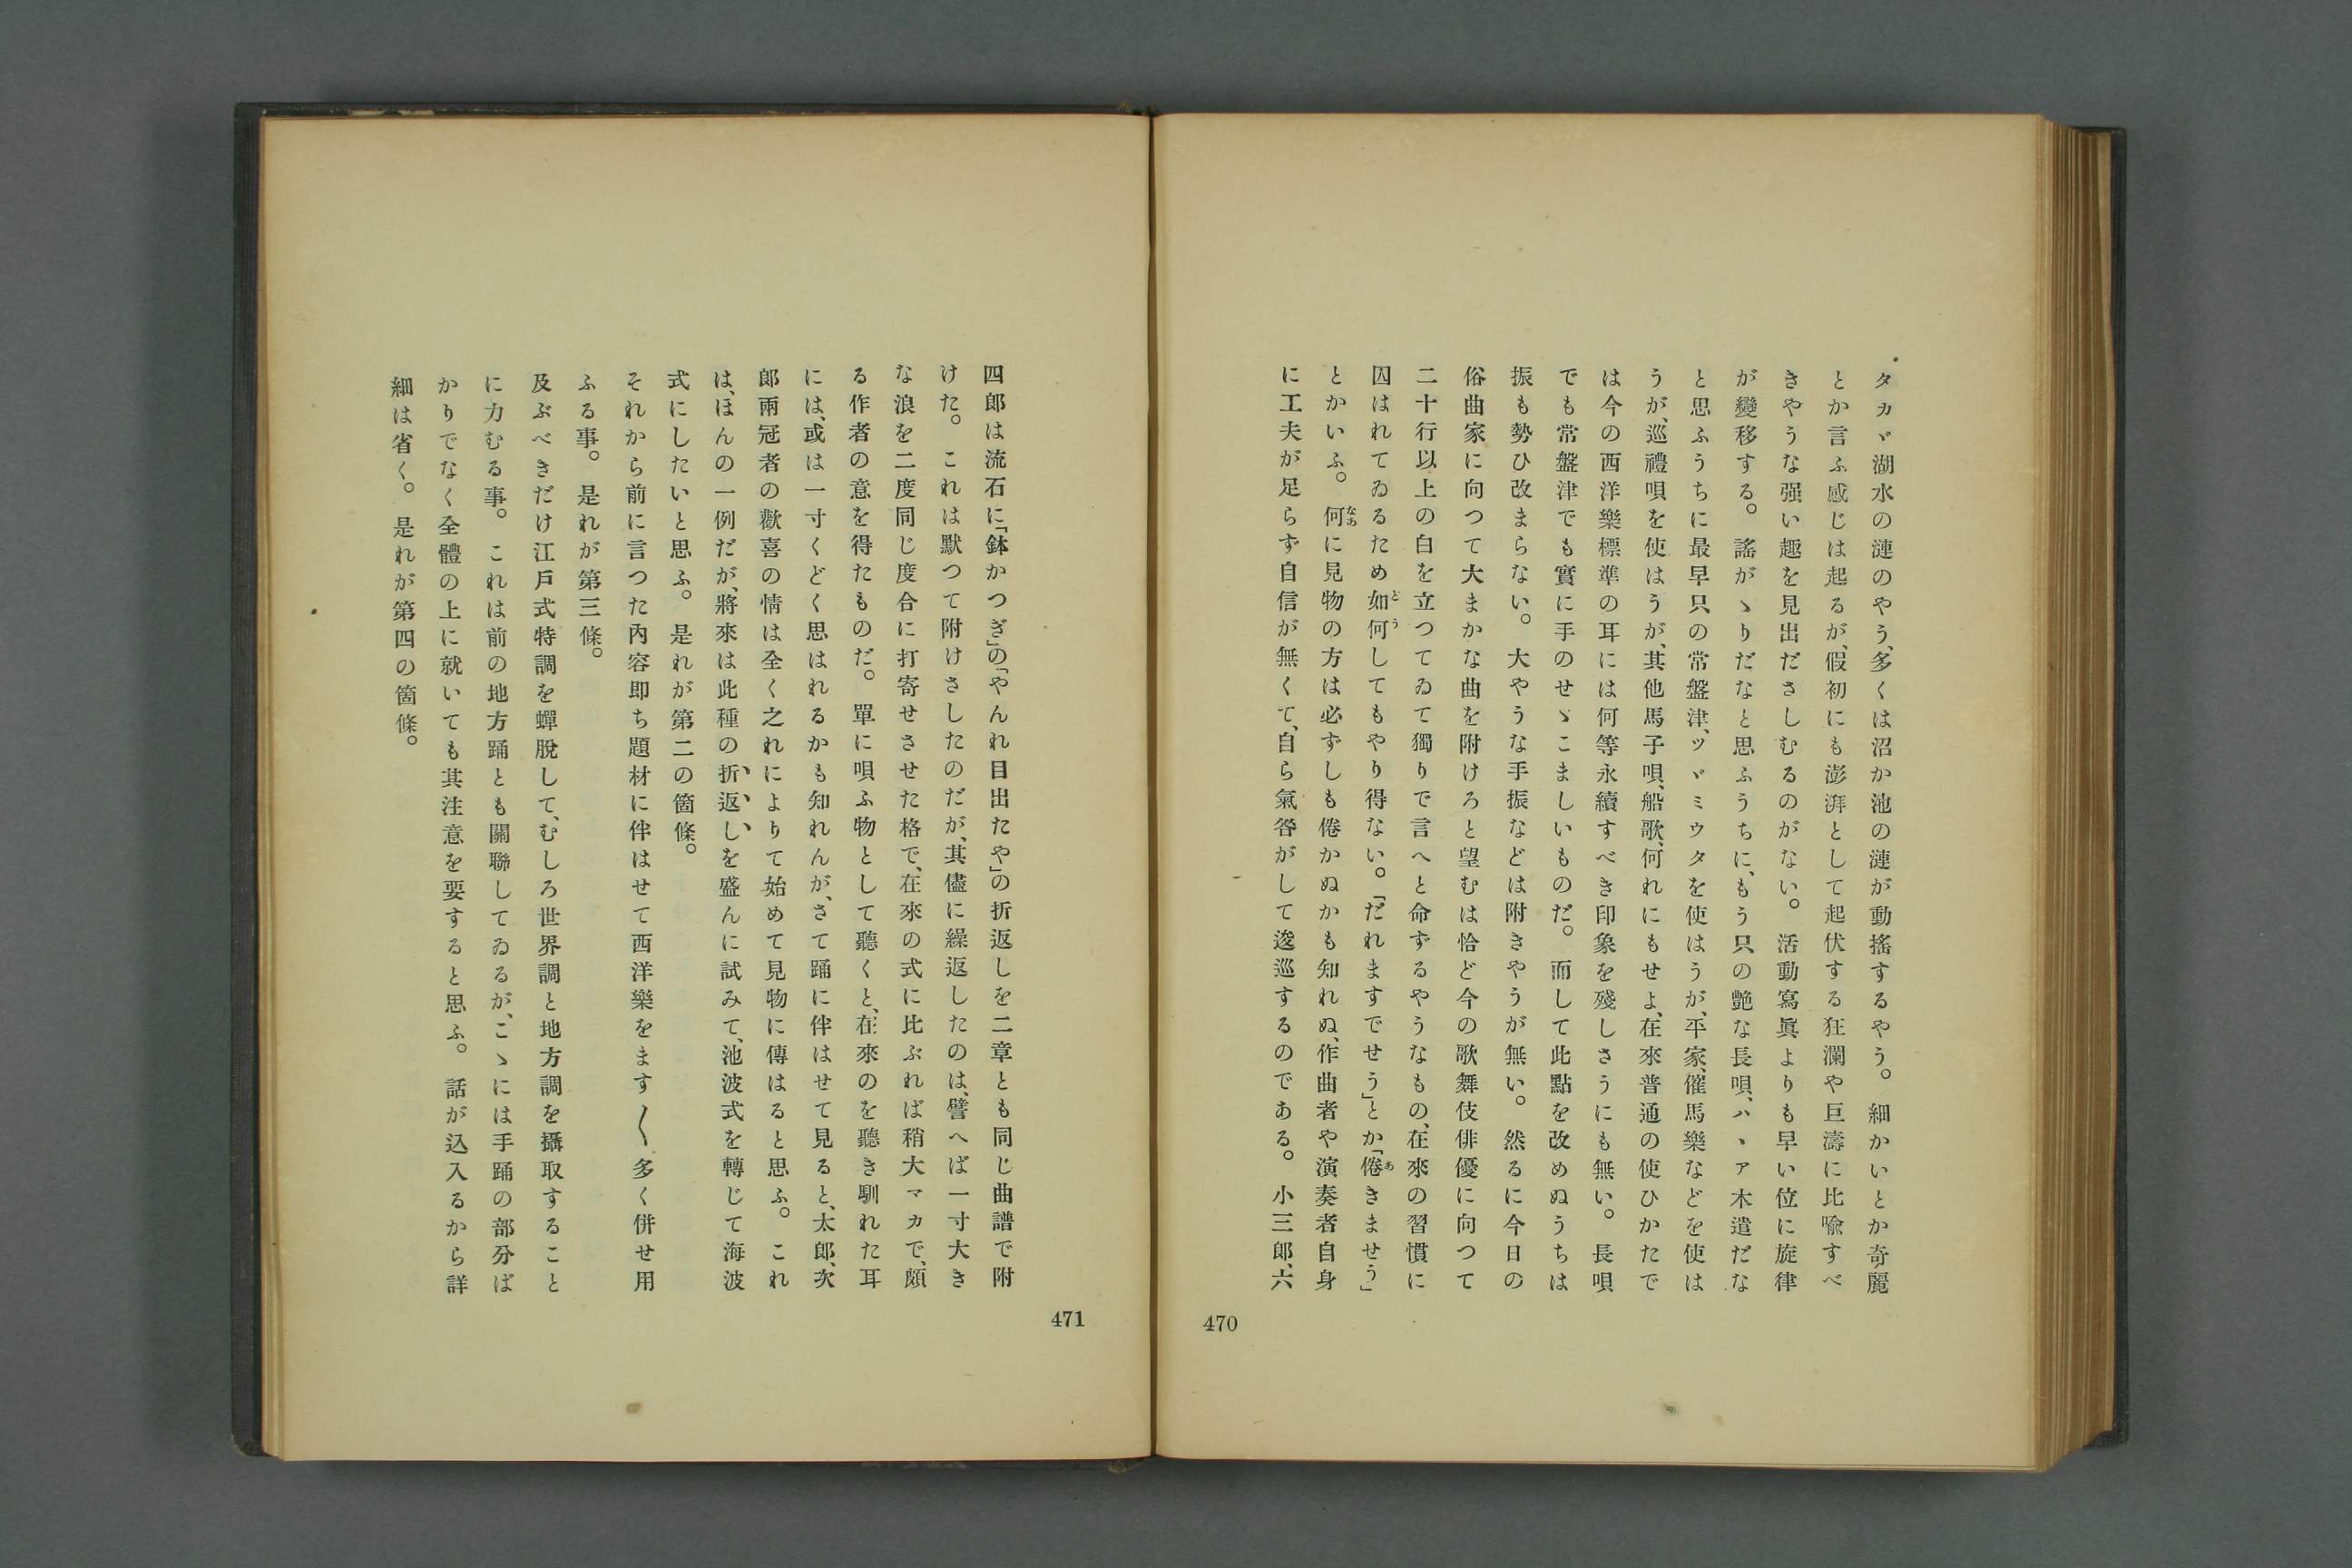 タカヾ湖水の漣のやう、多くは沼か池の漣が動搖するやう。細かいとか奇麗
とか言ふ感じは起るが、假初にも澎湃として起伏する狂瀾や巨濤に比喩すべ
きやうな强い趣を見出ださしむるのがない。活動寫眞よりも早い位に旋律
が變移する。謠がヽりだなと思ふうちに、もう只の艶な長唄、ハヽア木遣だな
と思ふうちに最早只の常盤津、ツヾミウタを使はうが、平家、催馬樂などを使は
うが、巡禮唄を使はうが、其他馬子唄、船歌、何れにもせよ、在來普通の使ひかたで
は今の西洋樂標準の耳には何等永續すべき印象を殘しさうにも無い。長唄
でも常盤津でも實に手のせゞこましいものだ。而して此點を改めぬうちは
振も勢ひ改まらない。大やうな手振などは附きやうが無い。然るに今日の
俗曲家に向つて大まかな曲を附けろと望むは恰ど今の歌舞伎俳優に向つて
二十行以上の白を立つてゐて獨りで言へと命ずるやうなもの、在來の習慣に
囚はれてゐるため如何どうしてもやり得ない。「だれますでせう」とか「倦あきませう」
とかいふ。何なあに見物の方は必ずしも倦かぬかも知れぬ、作曲者や演奏者自身
に工夫が足らず自信が無くて、自ら氣咎がして逡巡するのである。小三郎、六
470
四郎は流石に「鉢かつぎ」の「やんれ目出たや」の折返しを二章とも同じ曲譜で附
けた。これは默つて附けさしたのだが、其儘に繰返したのは、譬へば一寸大き
な浪を二度同じ度合に打寄せさせた格で、在來の式に比ぶれば稍大マカで、頗
る作者の意を得たものだ。單に唄ふ物として聽くと、在來のを聽き馴れた耳
には、或は一寸くどく思はれるかも知れんが、さて踊に伴はせて見ると、太郎、次
郎兩冠者の歡喜の情は全く之れによりて始めて見物に傳はると思ふ。これ
は、ほんの一例だが、將來は此種の折返しを盛んに試みて、池波式を轉じて海波
式にしたいと思ふ。是れが第二の箇條。
それから前に言つた內容即ち題材に伴はせて西洋樂をます〳〵多く併せ用
ふる事。是れが第三條。
及ぶべきだけ江戶式特調を蟬脫して、むしろ世界調と地方調を攝取すること
に力むる事。これは前の地方踊とも關聯してゐるが、こゝには手踊の部分ば
かりでなく全體の上に就いても其注意を要すると思ふ。話が込入るから詳
細は省く。是れが第四の箇條。
471